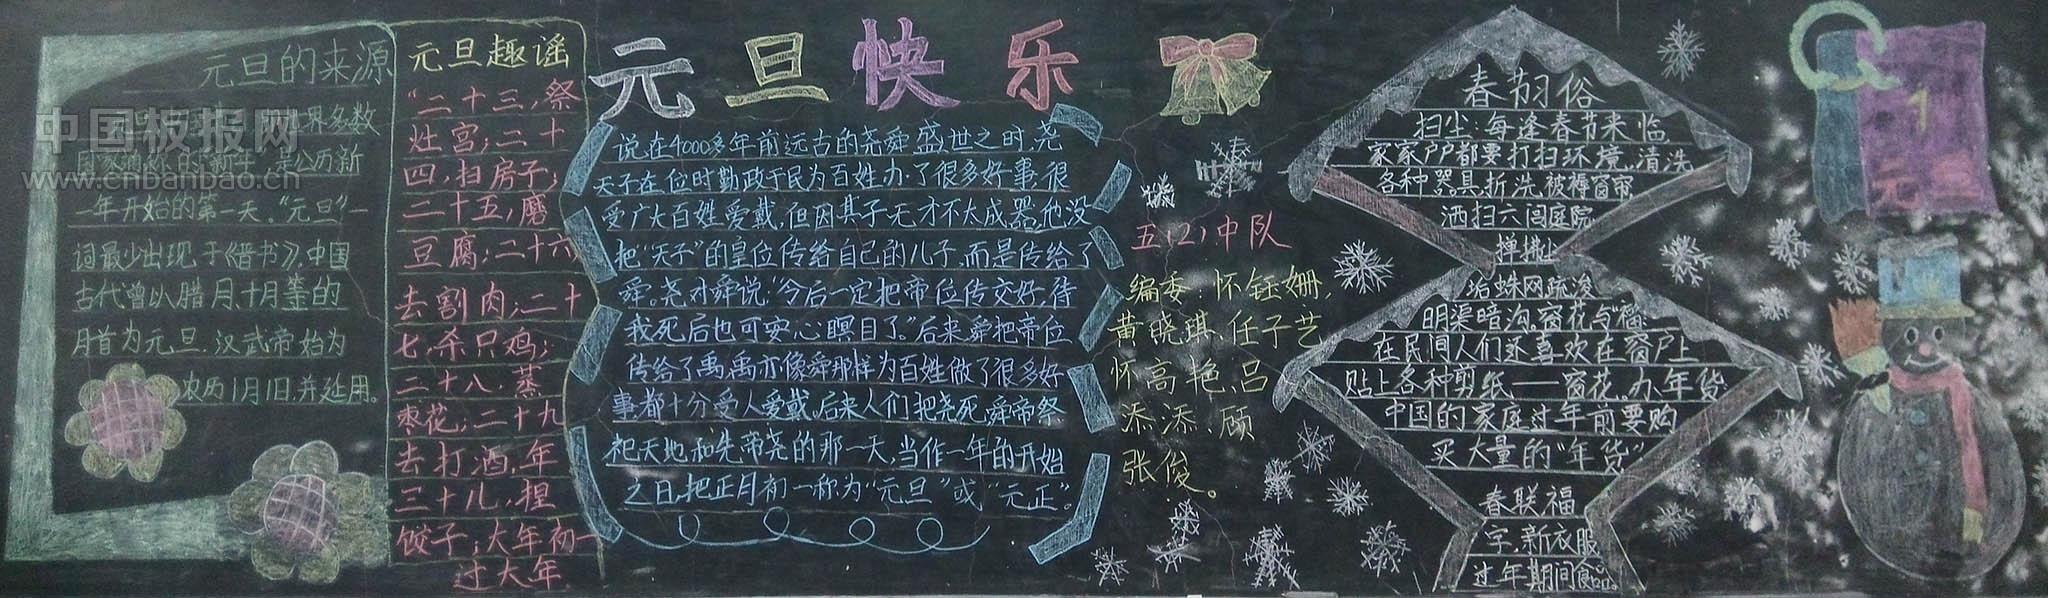 元旦的来源
世界多数
国家通称的"新年",是公历新
一年开始的第一天。"元旦"一
词最少出现于《晋书》,中国
古代曾以腊月、十月等的
月首为元旦.汉武帝始为
农历1月1日,并延用。
中国板报网
www.cnbanbao.cn
元旦趣谣
"二十三,祭
灶宫;二十
四,扫房子;
二十五,磨
豆腐;二十六
去割肉;二十
七,杀只鸡;
二十八.蒸
枣花;二十九
去打酒,年
三十儿,捏
饺子;大年初一
过大年
元旦快乐
说在4000多年前远古的尧舜盛世之时,尧
天子在位时勤政于民为百姓办了很多好事,很
受广大百姓爱戴,但因其子无才不大成器,他没
把"天子"的皇位传给自己的儿子,而是传给了
舜。尧对舜说:"今后一定把帝位传交好,待
我死后也可安心瞑目了。"后来舜把帝位
传给了禹,禹亦像舜那样为百姓做了很多好
事,都十分受人爱戴。后来人们把尧死,舜帝祭
祀天地和先帝尧的那一天,当作一年的开始
之日,把正月初一称为"元旦"或"元正"。
五(2)中队
编委:怀钰姗,
黄晓琪、任子艺
怀高艳、吕
添添、顾
张俊。
春节习俗
扫尘:每逢春节来临
家家户户都要打扫环境,清洗
各种器具,拆洗被褥窗帘
洒扫六闾庭院
掸拂
蛛网疏浚
明渠暗沟。窗花与福:
在民间人们还喜欢在窗户上
贴上各种剪纸——窗花。办年货
中国的家庭过年前要购
买大量的"年货"
春联福
字,新衣服
过年期间食品。
1
元旦